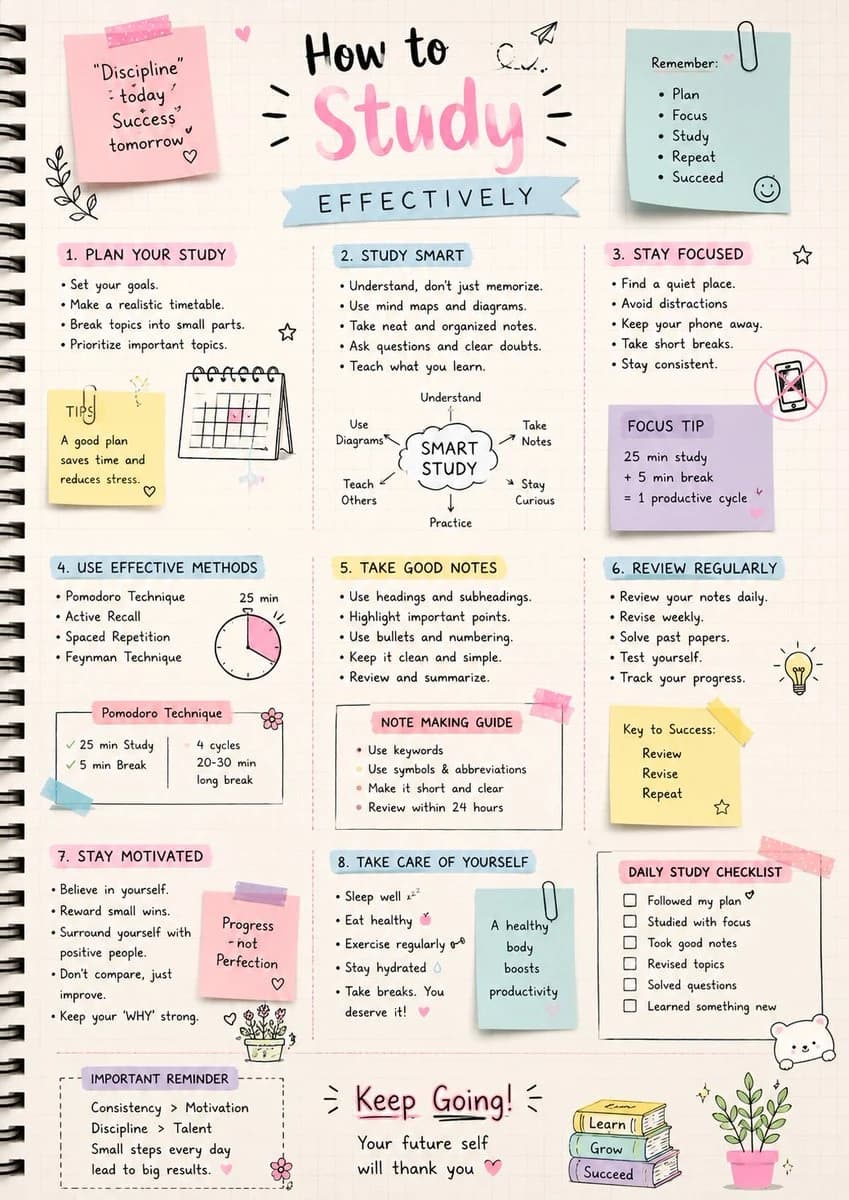 "Discipline"
today
Success
tomorrow
How to
Study
EFFECTIVELY
Remember:
• Plan
• Focus
• Study
• Repeat
• Succeed
1. PLAN YOUR STUDY
• Set your goals.
• Make a realistic timetable.
• Break topics into small parts.
• Prioritize important topics.
TIPS
A good plan
saves time and
reduces stress.
2. STUDY SMART
• Understand, don't just memorize.
• Use mind maps and diagrams.
• Take neat and organized notes.
• Ask questions and clear doubts.
• Teach what you learn.
Understand
Use
Diagrams
Take
Notes
SMART
STUDY
Teach
Others
Stay
Curious
Practice
3. STAY FOCUSED
• Find a quiet place.
• Avoid distractions
• Keep your phone away.
• Take short breaks.
• Stay consistent.
FOCUS TIP
25 min study
+ 5 min break
= 1 productive cycle
4. USE EFFECTIVE METHODS
• Pomodoro Technique
• Active Recall
• Spaced Repetition
• Feynman Technique
25 min
Pomodoro Technique
✓ 25 min Study
✓ 5 min Break
4 cycles
20-30 min
long break
5. TAKE GOOD NOTES
• Use headings and subheadings.
• Highlight important points.
• Use bullets and numbering.
• Keep it clean and simple.
• Review and summarize.
NOTE MAKING GUIDE
• Use keywords
• Use symbols & abbreviations
• Make it short and clear
• Review within 24 hours
6. REVIEW REGULARLY
• Review your notes daily.
• Revise weekly.
• Solve past papers.
• Test yourself.
• Track your progress.
Key to Success:
Review
Revise
Repeat
7. STAY MOTIVATED
• Believe in yourself.
• Reward small wins.
• Surround yourself with
positive people.
• Don't compare, just
improve.
• Keep your 'WHY' strong.
Progress
- not
Perfection
8. TAKE CARE OF YOURSELF
• Sleep well zzz
• Eat healthy
• Exercise regularly
• Stay hydrated
• Take breaks. You
deserve it!
A healthy
body
boosts
productivity
DAILY STUDY CHECKLIST
Followed my plan
Studied with focus
Took good notes
Revised topics
Solved questions
Learned something new
IMPORTANT REMINDER
Consistency > Motivation
Discipline > Talent
Small steps every day
lead to big results.
Keep Going!
Your future self
will thank you
Learn
Grow
Succeed